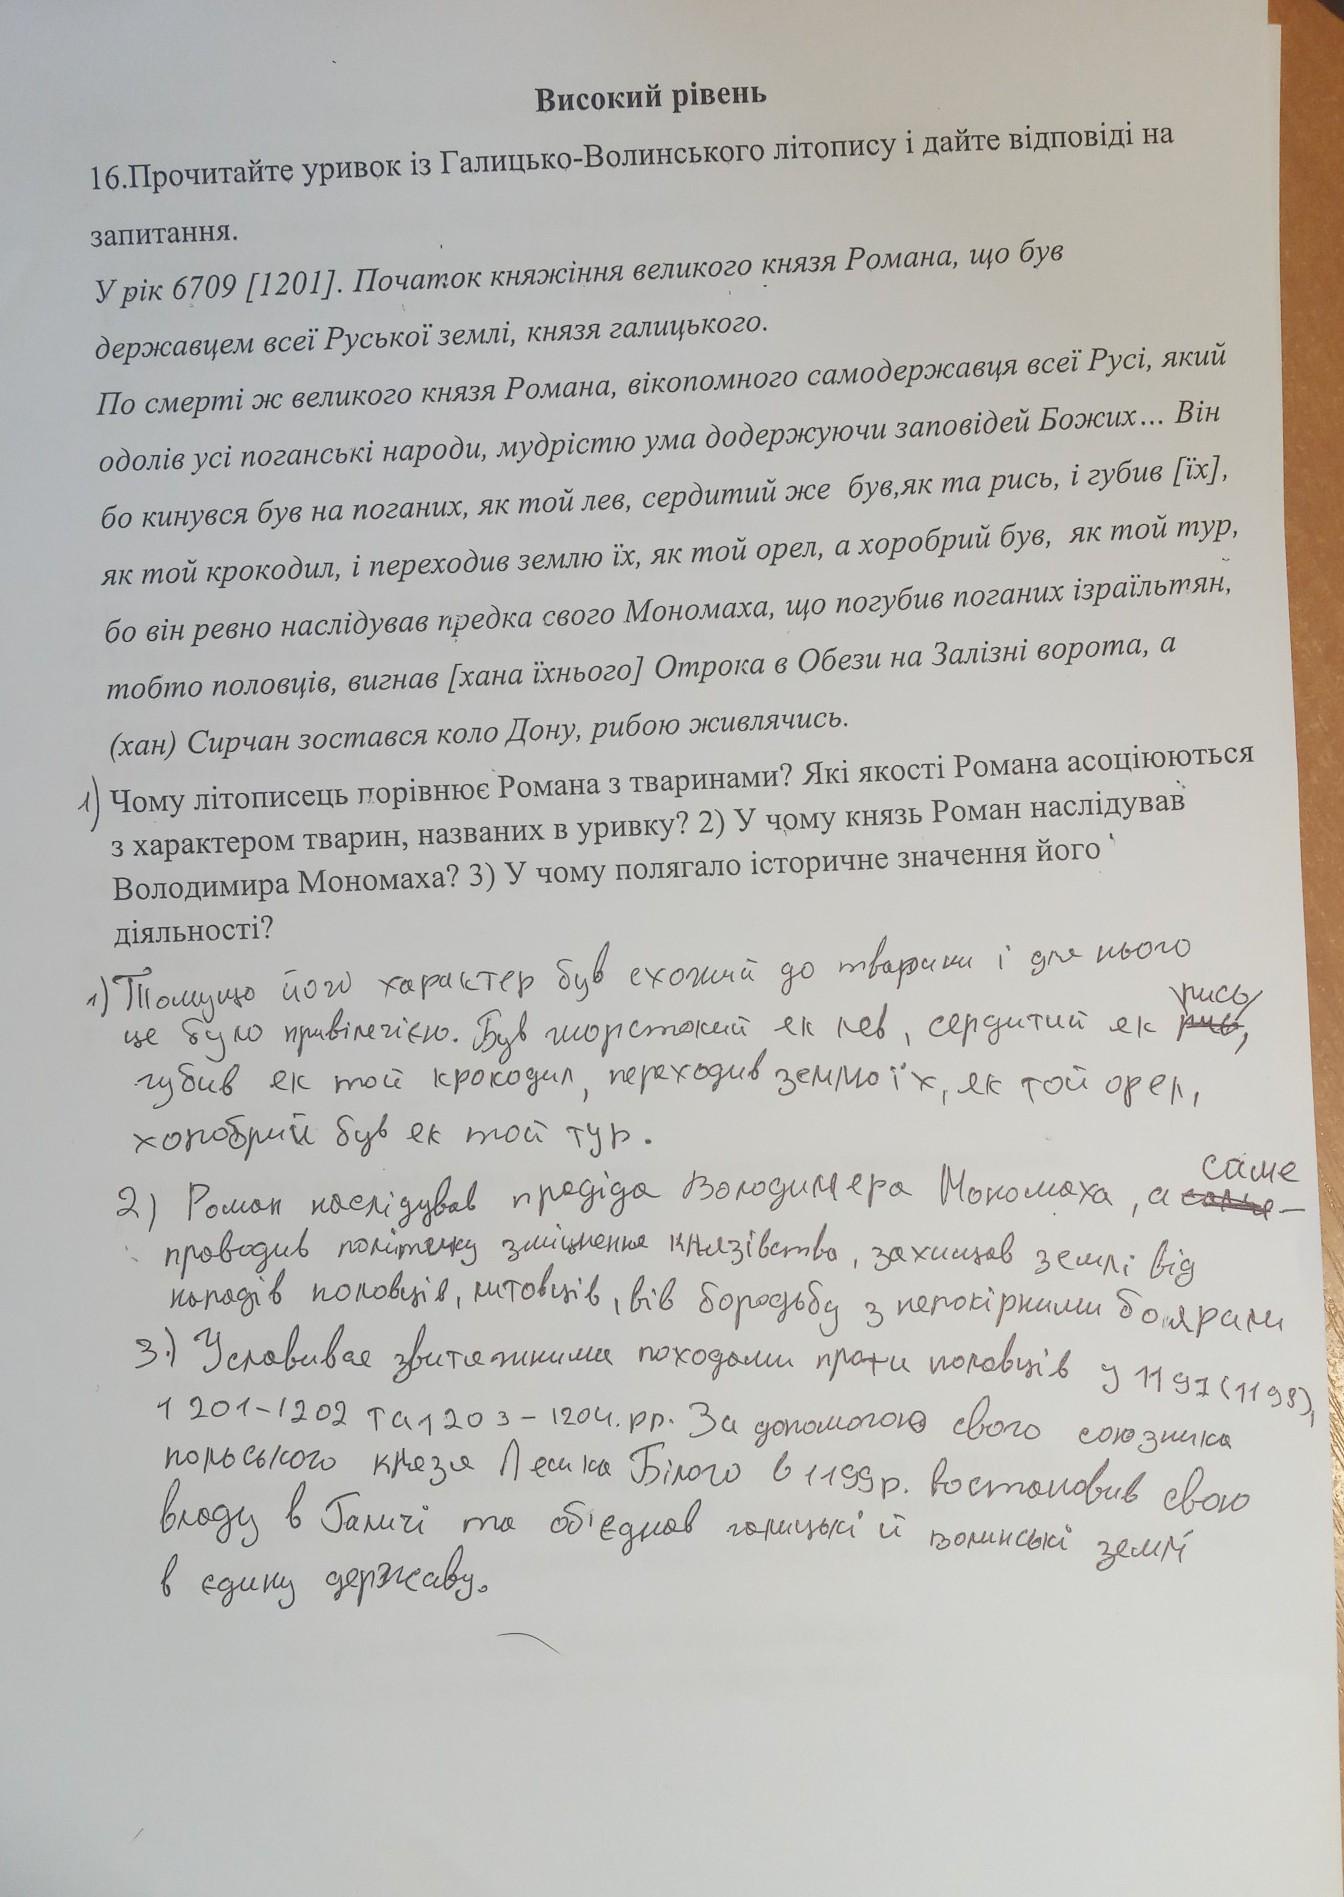 Високий рівень
16.Прочитайте уривок із Галицько-Волинського літопису і дайте відповіді на
запитання.
У рік 6709 [1201]. Початок княжіння великого князя Романа, що був
державцем всеї Руської землі, князя галицького.
По смерті ж великого князя Романа, вікопомного самодержавця всеї Русі, який
одолів усі поганські народи, мудрістю ума додержуючи заповідей Божих... Він
бо кинувся був на поганих, як той лев, сердитий же був,як та рись, і губив [їх],
як той крокодил, і переходив землю їх, як той орел, а хоробрий був, як той тур,
бо він ревно наслідував предка свого Мономаха, що погубив поганих ізраїльтян,
тобто половців, вигнав [хана їхнього] Отрока в Обези на Залізні ворота, а
(хан) Сирчан зостався коло Дону, рибою живлячись.
1) Чому літописець порівнює Романа з тваринами? Які якості Романа асоціюються
з характером тварин, названих в уривку? 2) У чому князь Роман наслідував
Володимира Мономаха? 3) У чому полягало історичне значення його
діяльності?
1) Томущо його характер був схожий до тварини і для нього
це було привілегією. Був жорстокий як лев, сердитий як рись,
губив як той крокодил, переходив землю їх, як той орел,
хоробрий був як той тур.
2) Роман наслідував прадіда Володимера Мономаха, а саме –
проводив політику зміцнення князівства, захищав землі від
нападів половців, литовців, вів бородьбу з непокірними боярами
3.) Уславився звитяжними походами проти половців у 1197(1198),
1201-1202 та 1203-1204.рр. За допомогою свого союзника
польського князя Лешка Білого в 1199р. востановив свою
владу в Галичі та об'єднав галицькі й волинські землі
в єдину державу.